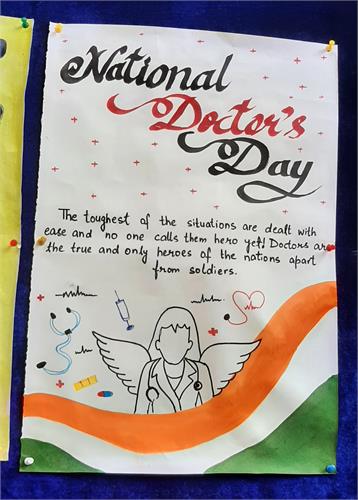 National
Doctor's
Day
The toughest of the situations are dealt with
ease and no one calls them hero yet! Doctors are
the true and only heroes of the nations apart
from soldiers.